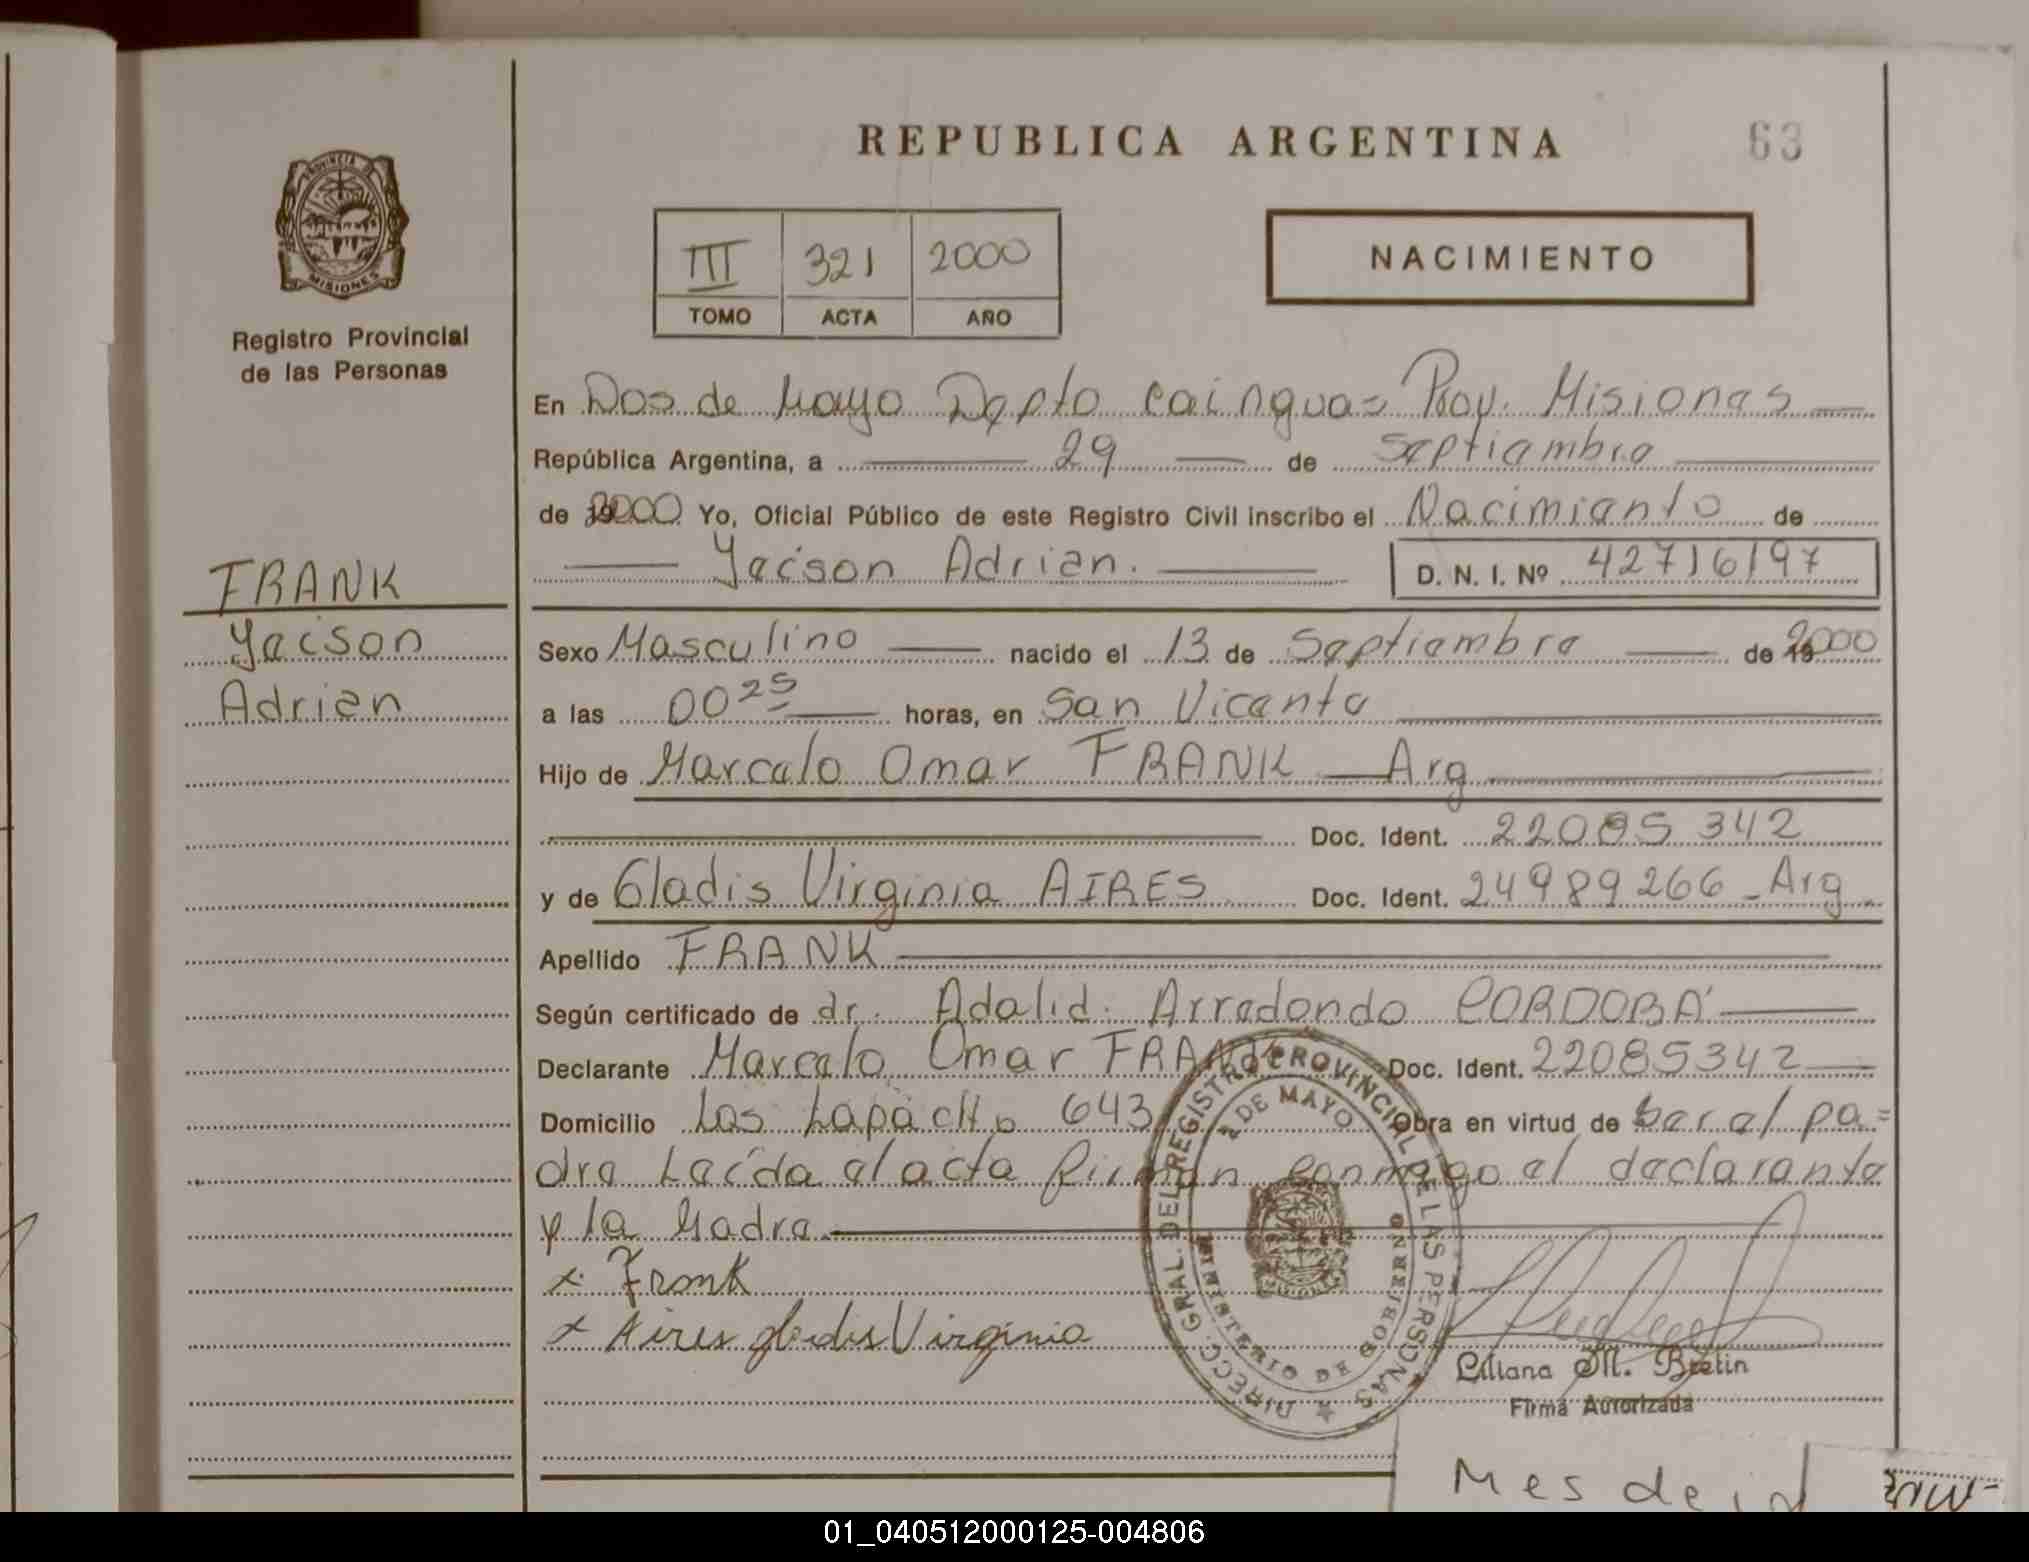 REPUBLICA ARGENTINA
63
PROVINCIA DE MISIONES
Registro Provincial
de las Personas
III 321 2000
TOMO ACTA AÑO
NACIMIENTO
En Dos de Mayo Depto Cainguas Prov. Misiones
República Argentina, a 29 de Septiembre
de 2000 Yo, Oficial Público de este Registro Civil inscribo el Nacimiento de
Yeison Adrian. D. N. I. Nº 42716197
FRANK
Yeison
Adrian
Sexo Masculino nacido el 13 de Septiembre de 2000
a las 00 25 horas, en San Vicente
Hijo de Marcelo Omar FRANK Arg
Doc. Ident. 22085 342
y de Gladis Virginia AIRES Doc. Ident. 24989266 - Arg
Apellido FRANK
Según certificado de dr. Adalid. Arredondo CORDOBA
Declarante Marcelo Omar FRANK Doc. Ident. 22085342
Domicilio Los Lapacho 643 Obra en virtud de ser el pa=
dre Leída el acta firman conmigo el declarante
y la Madre
x Frank
x Aires gladis Virginia
DIRECC. GRAL. DEL REGISTRO PROVINCIAL DE LAS PERSONAS
2 DE MAYO
MINISTERIO DE GOBIERNO
Liliana M. Bretin
Firma Autorizada
Mes de
01_040512000125-004806